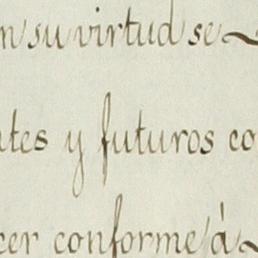 n su virtud se
ntes y futuros co
cer conforme á